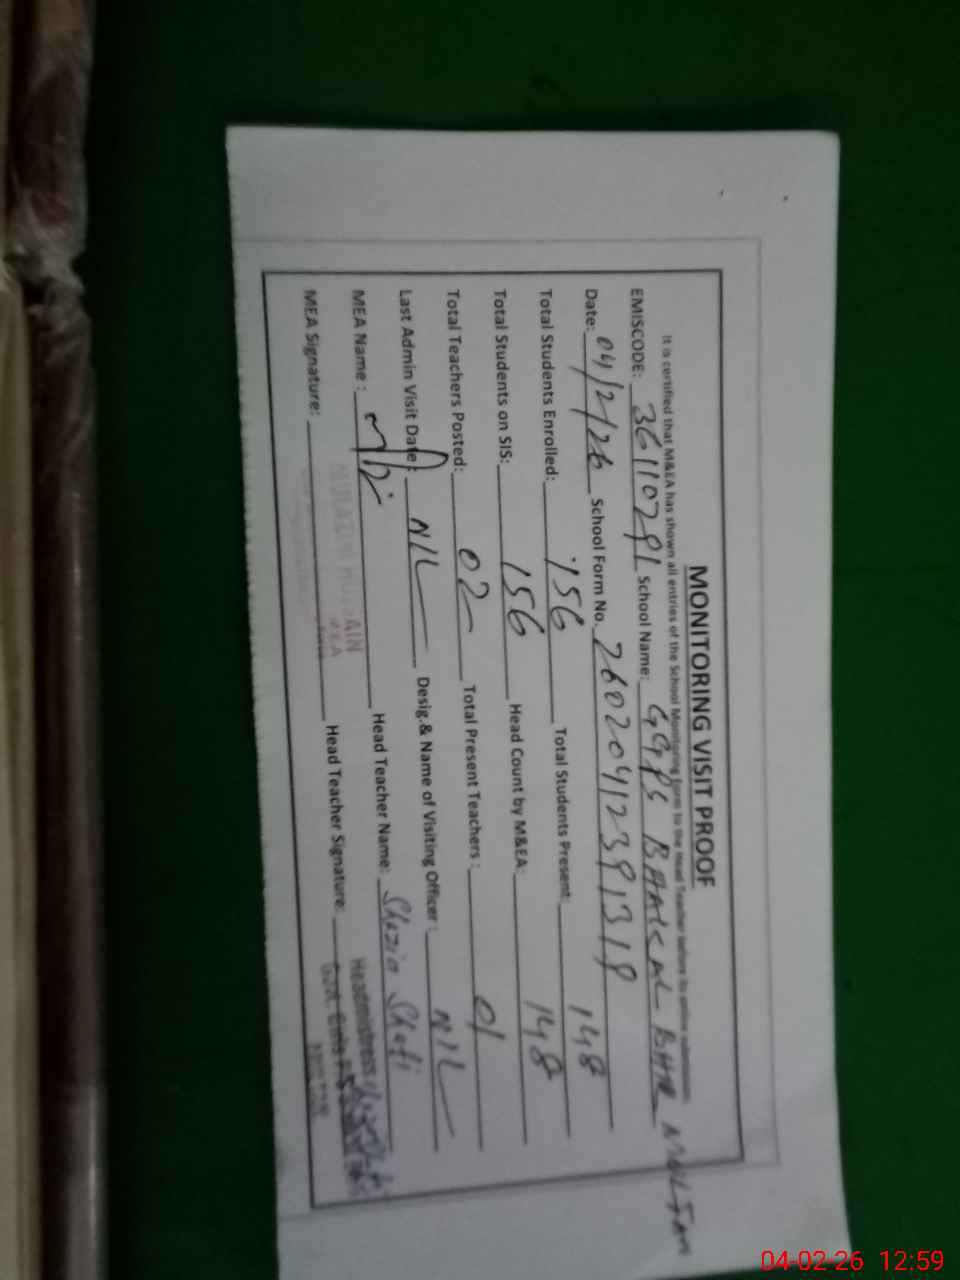 MONITORING VISIT PROOF
It is certified that M&EA has shown all entries of the School Monitoring Form to the Head Teacher before its online submission.
EMISCODE: School Name: GGPS MULTAN
Date: 04/2/26 School Form No.
Total Students Enrolled: 156 Total Students Present: 148
Total Students on SIS: 156 Head Count by M&EA: 148
Total Teachers Posted: 02 Total Present Teachers: 01
Last Admin Visit Date: NIL Desig.& Name of Visiting Officer: NIL
MEA Name: Head Teacher Name: Shazia Shafi
MEA Signature: Head Teacher Signature:
HUSSAIN
MEA
Headmistress
Govt. Girls
MULTAN
04-02-26 12:59